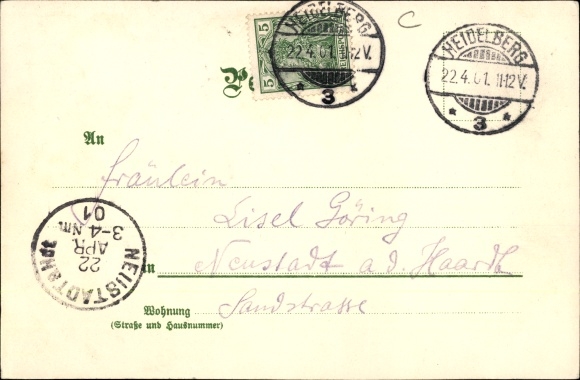 C
5 5
HEIDELBERG
22.4.01. 11-12V.
* 3 *
HEIDELBERG
22.4.01. 11-12V.
* 3 *
An
Fräulein
Lisel Göring
in Neustadt a. d. Haardt
Wohnung Sandstrasse
(Straße und Hausnummer)
NEUSTADT
22
APR
3-4 Nm
01